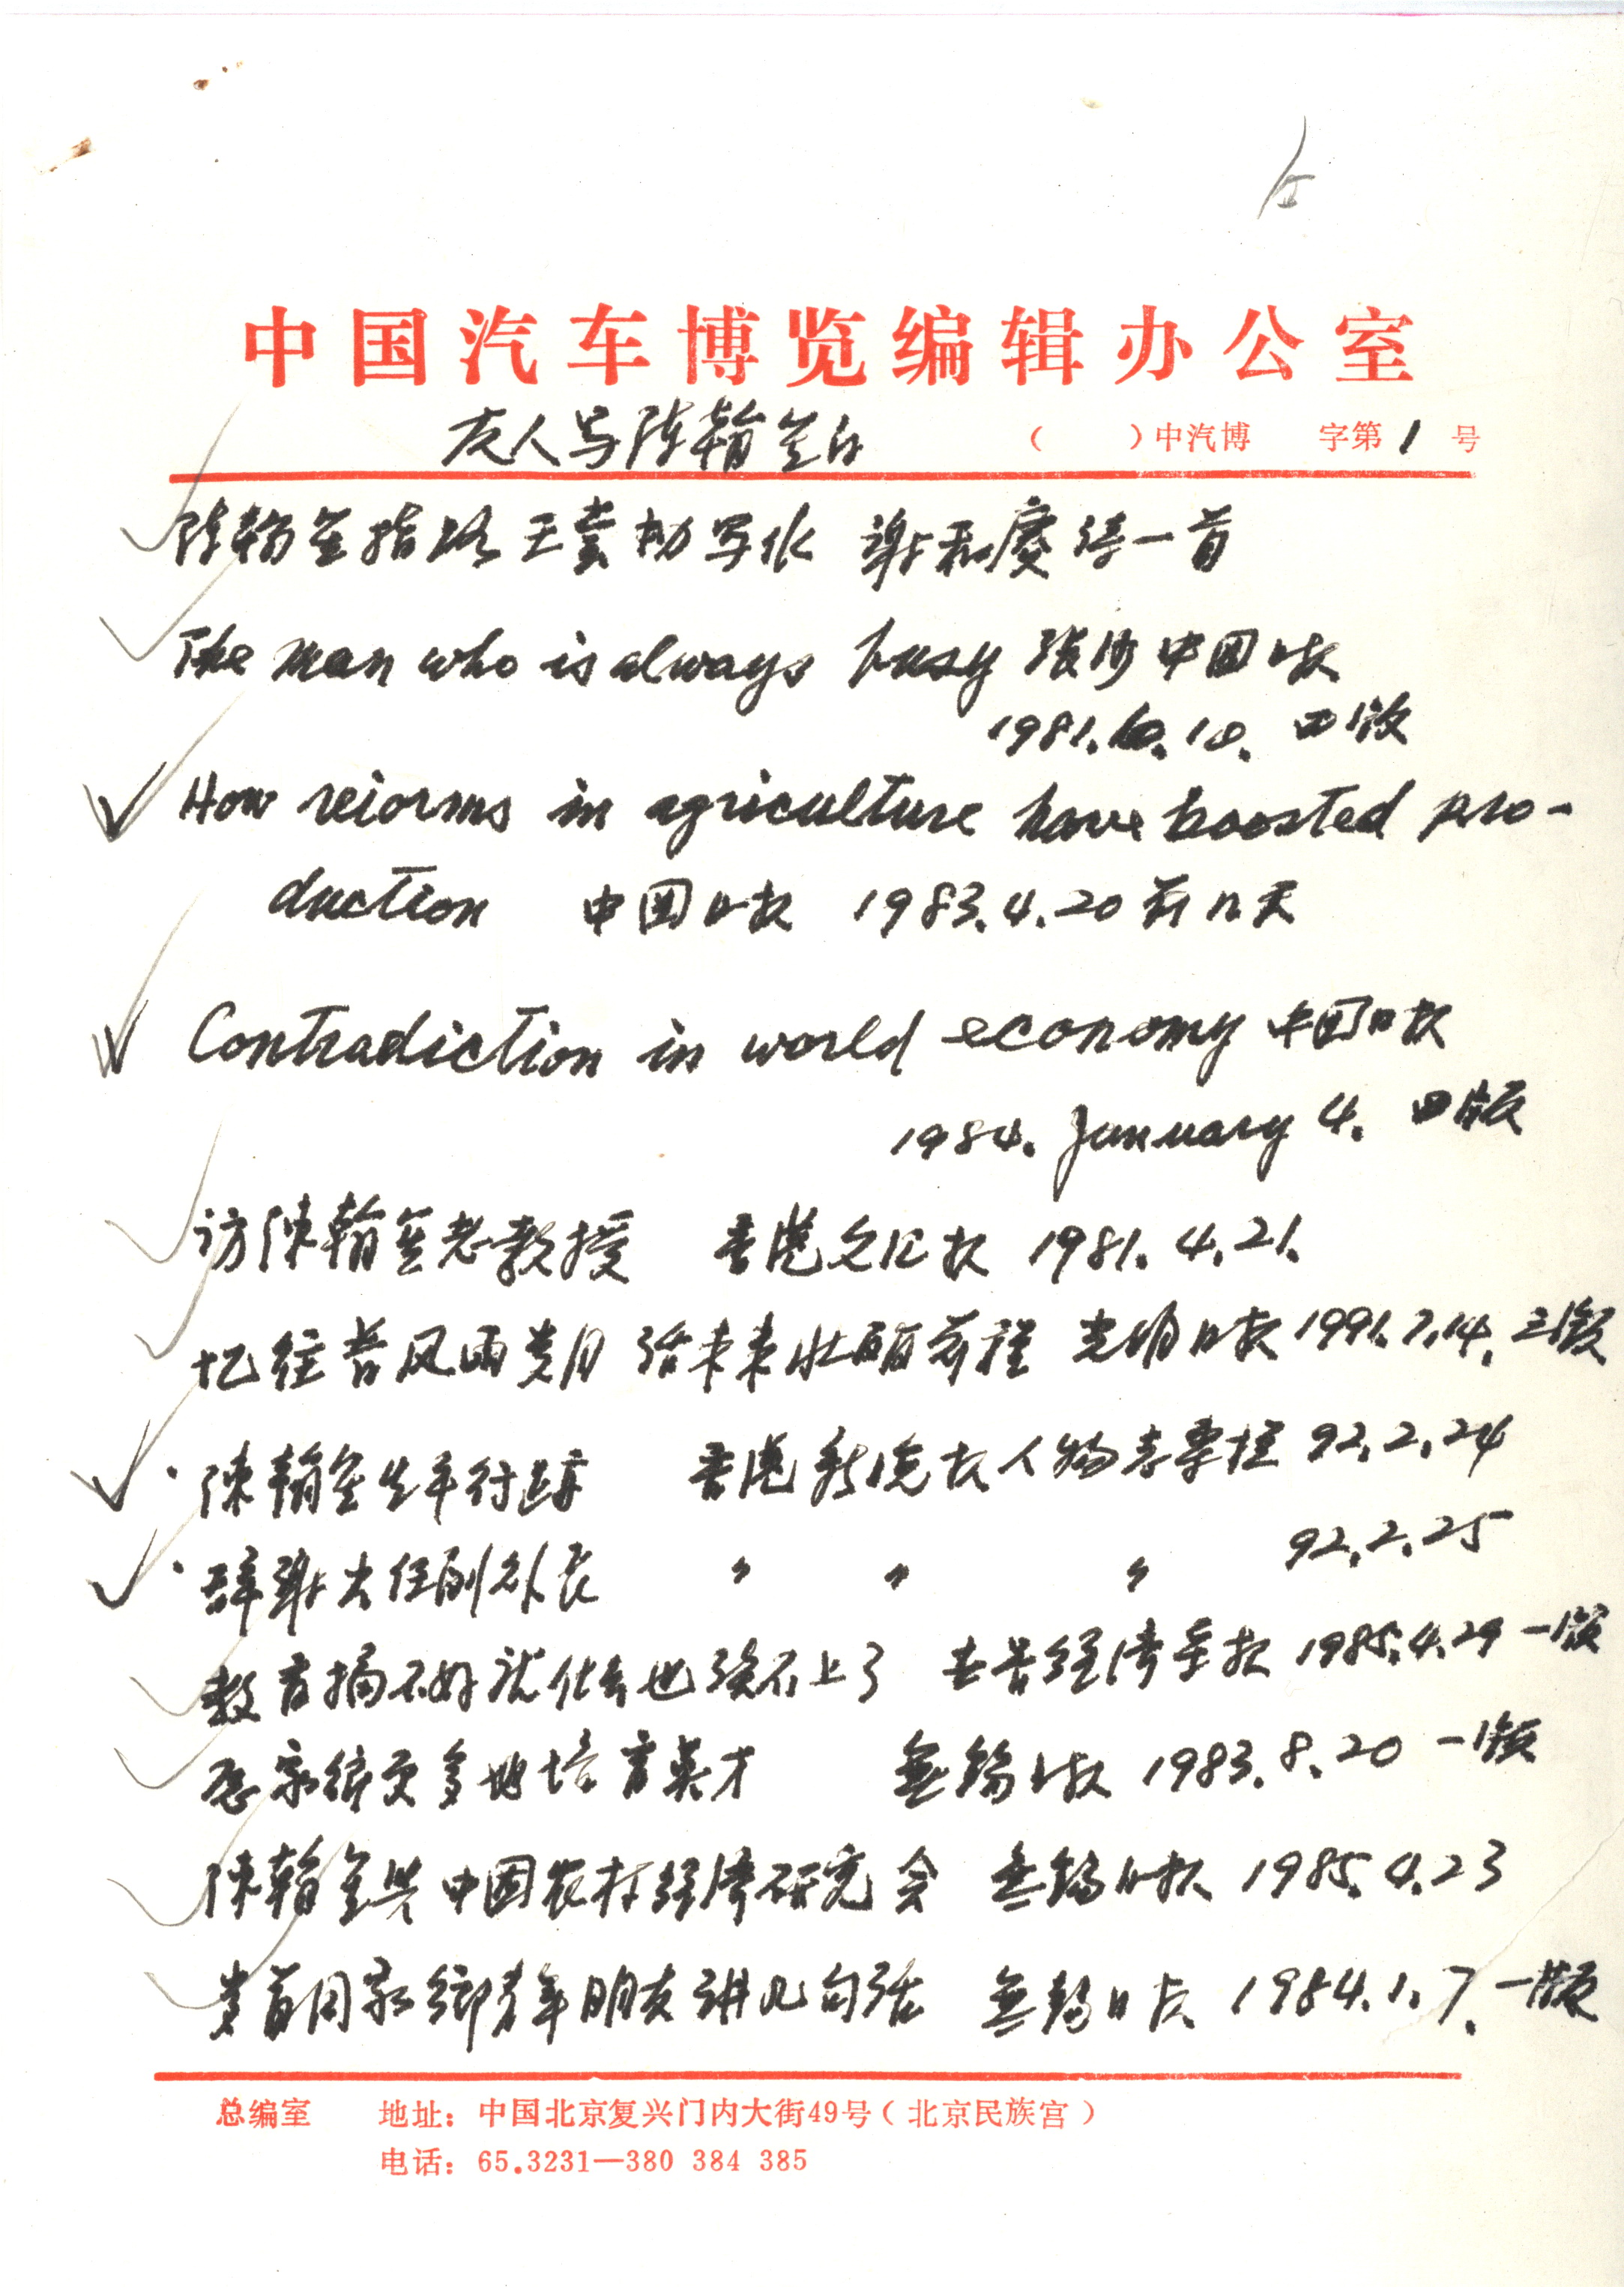 中国汽车博览编辑办公室
友人写陈翰笙的 （ ）中汽博 字第1号
陈翰笙指路 王莹 写作 谢和赓诗一首
The man who is always busy 张沙 中国日报
1981.10.10. 四版
How reiorms in agriculture have boosted pro-
duction 中国日报 1983.4.20 前几天
Contradiction in world economy 中国日报
1984. January 4. 四版
访陈翰笙老教授 香港文汇报 1981.4.21.
忆往昔风雨岁月 话未来壮丽前程 光明日报 1991.7.14.三版
陳翰笙生平行踪 香港新晚报人物志专栏 92.2.24
辞谢出任副外长 〃 〃 〃 92.2.25
教育搞不好现代化也谈不上了 世界经济导报 1985.4.29 一版
愿家鄉更多地培育英才 無錫日报 1983.8.20 一版
陳翰笙与中国农村经济研究会 無錫日报 1985.4.23
岁首同家鄉青年朋友讲几句话 無錫日报 1984.1.7.一版
总编室 地址：中国北京复兴门内大街49号（北京民族宫）
电话：65.3231—380 384 385